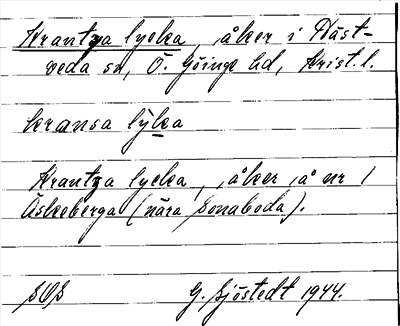 Krantza lycka, åker i Häst-
veda sn, Ö. Göinge hd, Krist. l.
kransa lỳka
Krantza lycka, åker å nr 1
Äskeberga (nära Sonaboda).
SOS
G. Sjöstedt 1944.